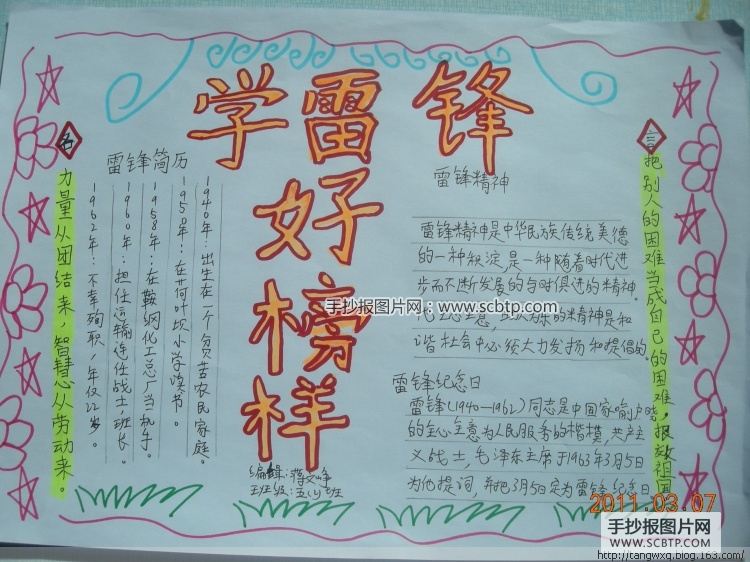 学雷锋
好榜样
名
力量从团结来，智慧从劳动来。
雷锋简历
1940年：出生在一个贫苦农民家庭。
1950年：在荷叶坝小学读书。
1958年：在鞍钢化工总厂当机手。
1960年：担任运输连任战士，班长。
1962年：不幸殉职，年仅22岁。
编辑：蒋
班级：五班
雷锋精神
雷锋精神是中华民族传统美德
的一种积淀是一种随着时代进
步而不断发展的与时俱进的精神。
为乐的精神是和
谐社会中必须大力发扬和提倡的。
雷锋纪念日
雷锋(1940—1962)同志是中国家喻户晓
的全心全意为人民服务的楷模，共产主
义战士，毛泽东主席于1963年3月5日
为他提词，并把3月5日定为雷锋纪念日
言
把别人的困难当成自己的困难，报效祖国
手抄报图片网：www.scbtp.com
2011.03.07
手抄报图片网
WWW.SCBTP.COM
http://tangwxq.blog.163.com/